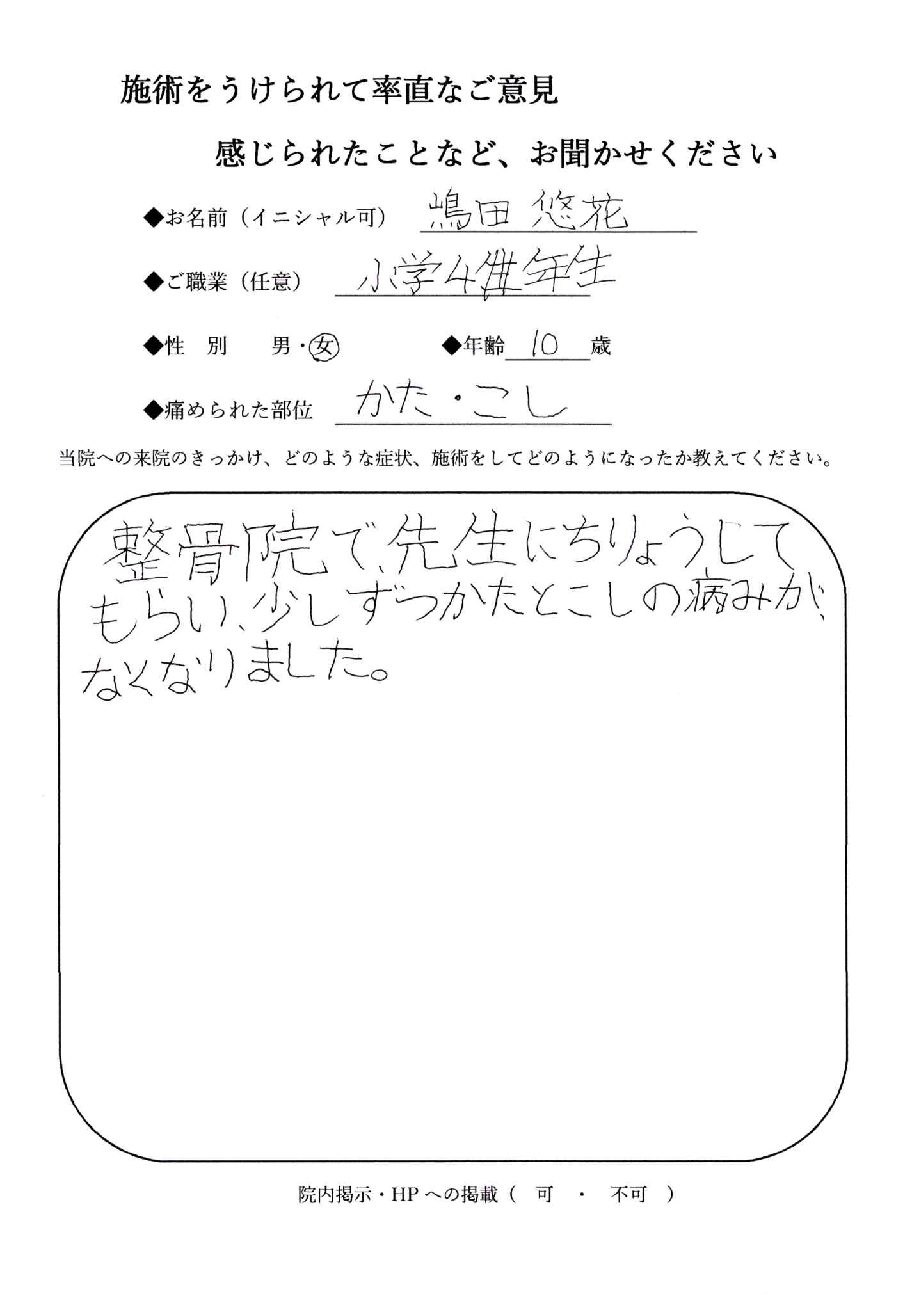 施術をうけられて率直なご意見
感じられたことなど、お聞かせください
◆お名前（イニシャル可） 嶋田 悠花
◆ご職業（任意） 小学4年生
◆性 別 男・女 ◆年齢 10 歳
◆痛められた部位 かた・こし
当院への来院のきっかけ、どのような症状、施術をしてどのようになったか教えてください。
整骨院で、先生にちりょうして
もらい、少しずつかたとこしの病みが、
なくなりました。
院内掲示・HPへの掲載（ 可 ・ 不可 ）